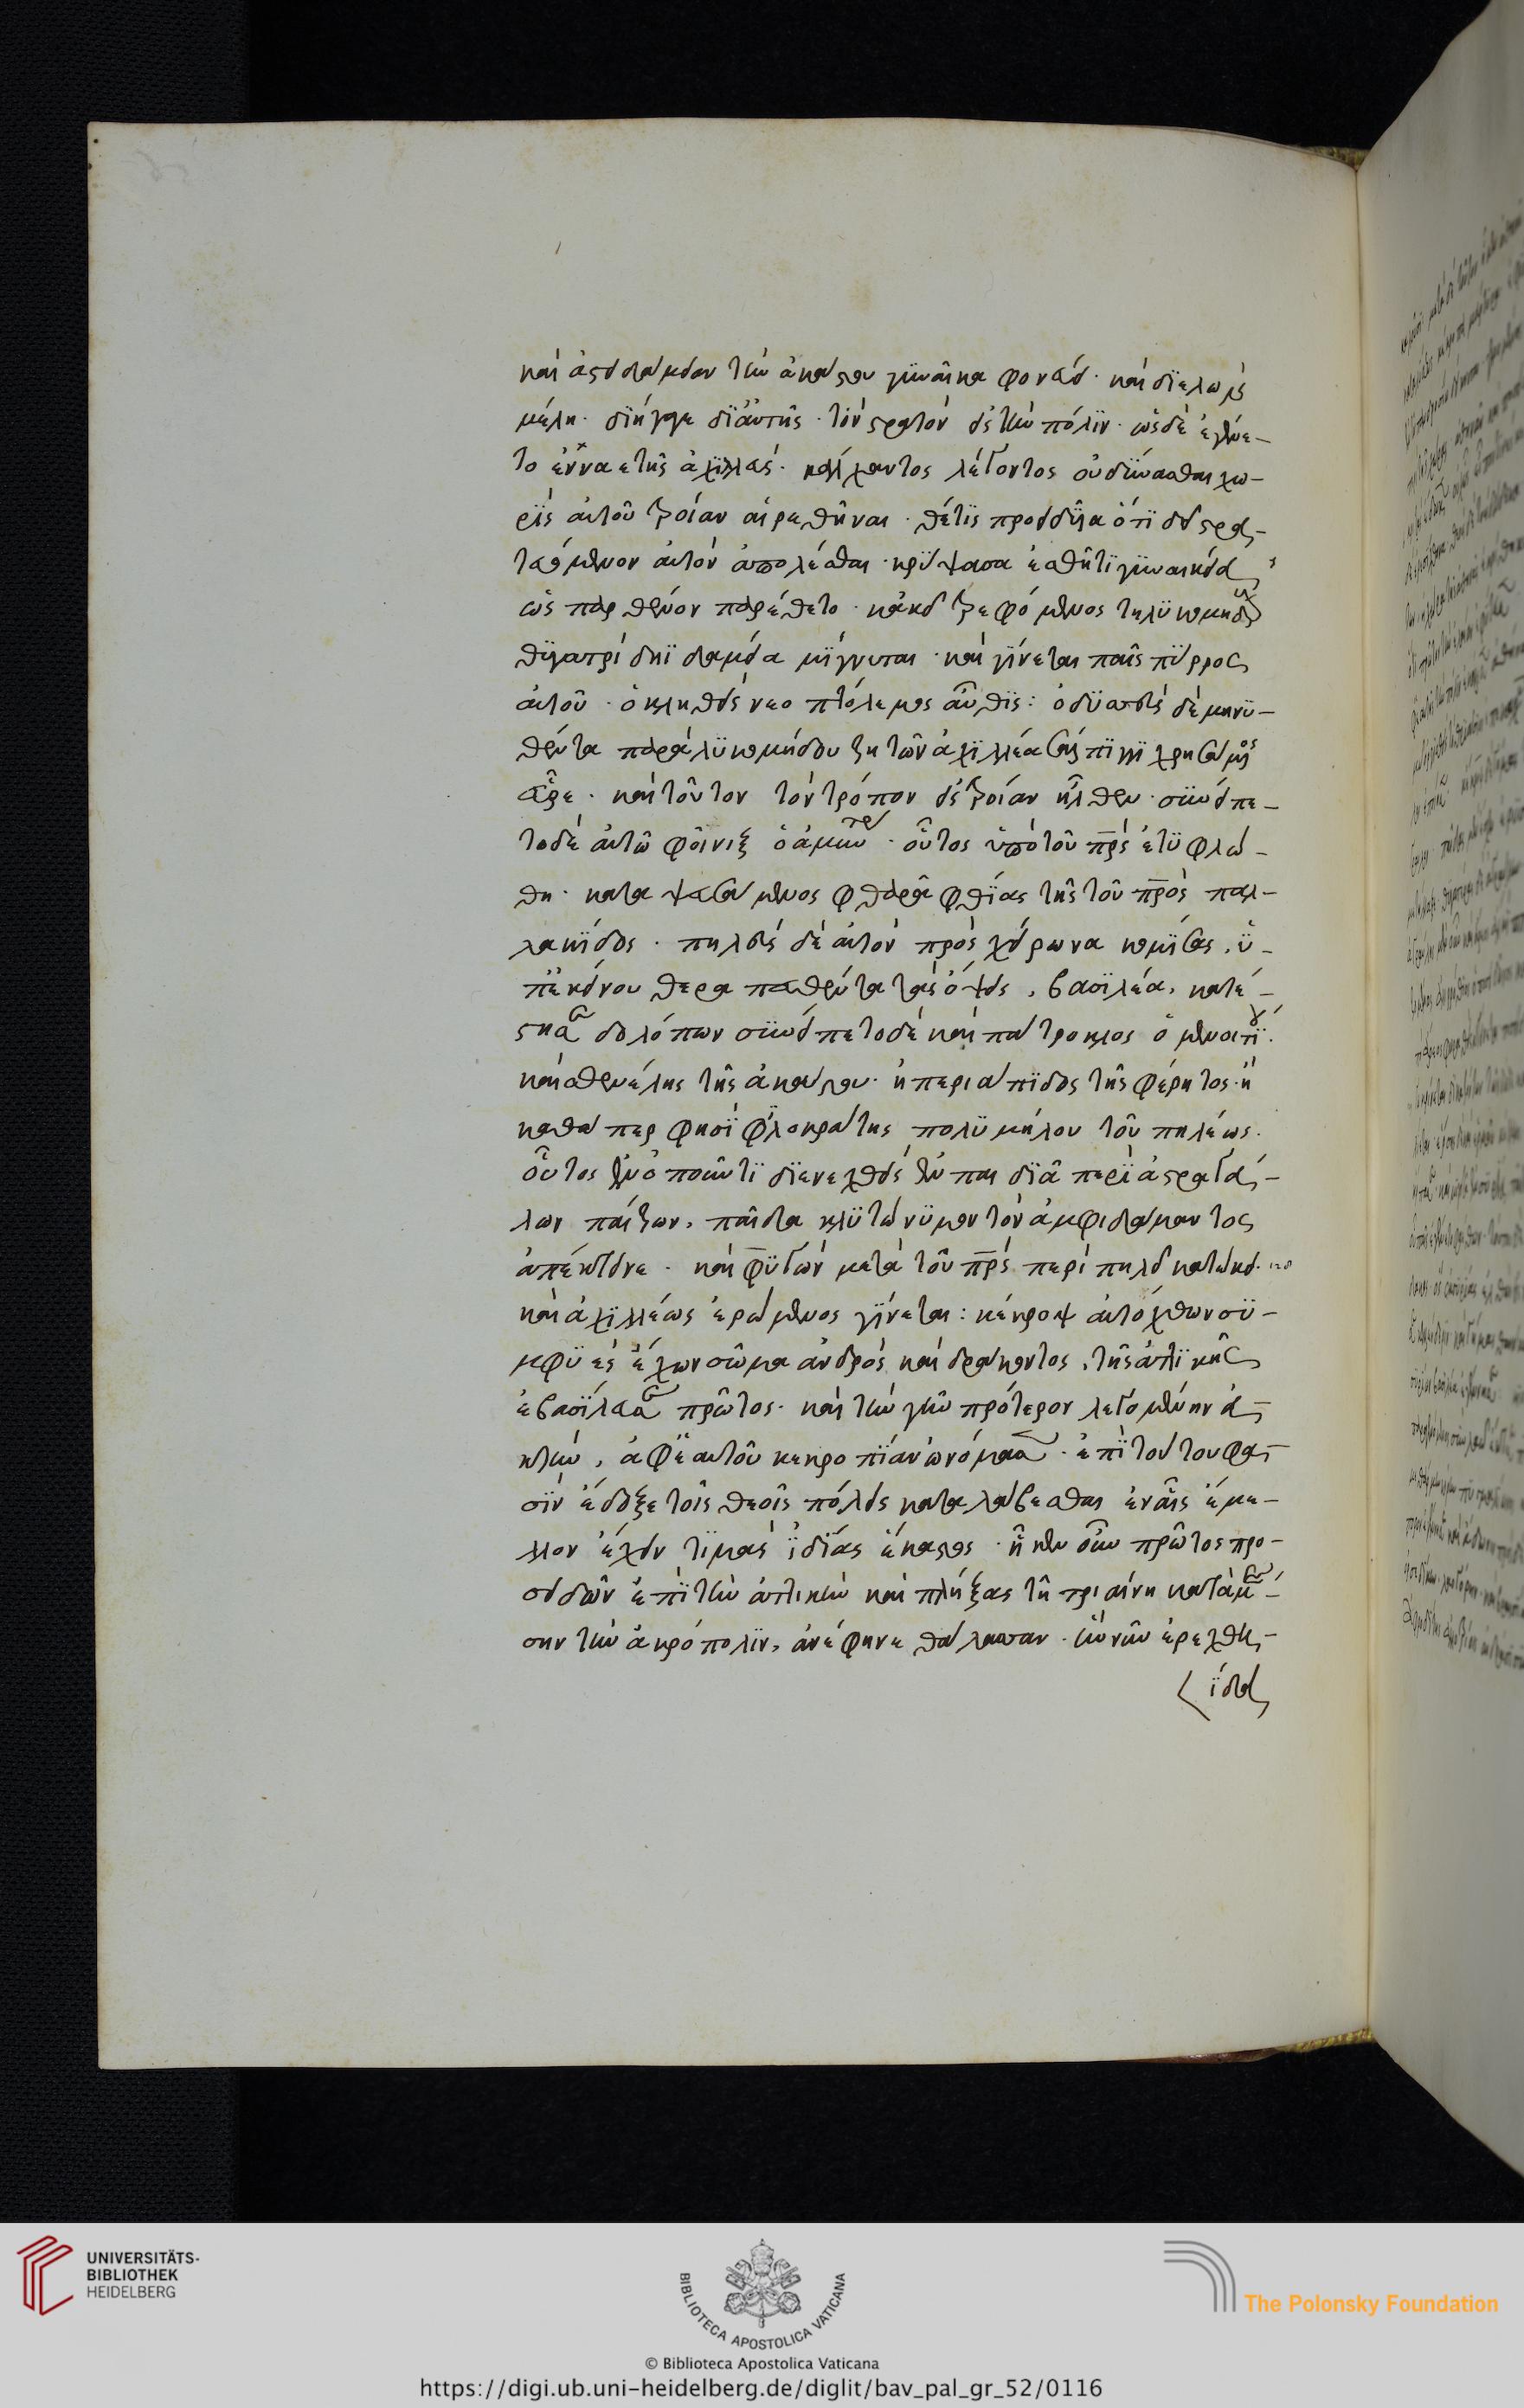 καὶ ἀστυδάμειαν τὴν ἀκάστου γυναῖκα φονεύει. καὶ διελὼν εἰς
μέλη. διήγαγε δι' αὐτῆς τὸν στρατὸν εἰς τὴν πόλιν. ὡς δὲ ἐγένε-
το ἐνναετὴς ἀχιλλεύς. κάλχαντος λέγοντος οὐ δύνασθαι χω-
ρὶς αὐτοῦ τροίαν αἱρεθῆναι. θέτις προειδυῖα ὅτι δεῖ στρα-
τευόμενον αὐτὸν ἀπολέσθαι. κρύψασα ἐσθῆτι γυναικεία
ὡς παρθένον παρέθετο. κἀκεῖ τρεφόμενος τῇ λυκομήδους
θυγατρὶ δηϊδαμεία μίγνυται. καὶ γίνεται παῖς πύρρος
αὐτοῦ. ὁ κληθεὶς νεοπτόλεμος αὖθις: ὀδυσσεὺς δὲ μηνυ-
θέντα παρὰ λυκομήδει ζητῶν ἀχιλλέα σάλπιγγι χρησάμενος
εὗρε. καὶ τοῦτον τὸν τρόπον εἰς τροίαν ἦλθεν. συνείπε-
το δὲ αὐτῶ φοῖνιξ ὁ ἀμύντορος. οὗτος ὑπὸ τοῦ πρς ἐτυφλώ-
θη. καταψευσαμένης φθορὰν φθίας τῆς τοῦ πρὸς παλ-
λακίδος. πηλεὺς δὲ αὐτὸν πρὸς χείρωνα κομίσας, ὑ-
π' ἐκείνου θεραπευθέντα τὰς ὄψεις, βασιλέα, κατέ-
στησε δολόπων συνείπετο δὲ καὶ πάτροκλος ὁ μενοιτίου.
καὶ σθενέλης τῆς ἀκάστου. ἢ περιάπιδος τῆς φέρητος. ἢ
καθάπερ φησὶ φιλοκράτης πολυμήλου τοῦ πηλέως.
οὗτος ἐν ὀποῦντι διενεχθεὶς ἐν παιδιᾶ περὶ ἀστραγά-
λων παίζων. παῖδα κλυτώνυμον τὸν ἀμφιδάμαντος
ἀπέκτεινε. καὶ φυγὼν μετὰ τοῦ πρς περὶ πηλεῖ κατώκει.
καὶ ἀχιλλέως ἐρώμενος γίνεται: κέκροψ αὐτόχθων συ-
μφυὲς ἔχων σῶμα ἀνδρὸς καὶ δράκοντος, τῆς ἀττικῆς
ἐβασίλευσε πρῶτος. καὶ τὴν γῆν πρότερον λεγομένην ἀ-
κτὴν, ἀφ' ἑαυτοῦ κεκροπίαν ὠνόμασεν. ἐπὶ τούτου φα-
σὶν ἔδοξε τοῖς θεοῖς πόλεις καταλαβέσθαι ἐν αἷς ἔμε-
λλον ἔχειν τιμὰς ἰδίας ἕκαστος. ἧκεν οὖν πρῶτος προ-
σειδῶν ἐπὶ τὴν ἀττικὴν καὶ πλήξας τῆ τριαίνη κατὰ μέ-
σην τὴν ἀκρόπολιν, ἀνέφηνε θάλασσαν. ἣν νῦν ἐρεχθη-
ίδα
UNIVERSITÄTS-
BIBLIOTHEK
HEIDELBERG
BIBLIOTECA APOSTOLICA VATICANA
The Polonsky Foundation
© Biblioteca Apostolica Vaticana
https://digi.ub.uni-heidelberg.de/diglit/bav_pal_gr_52/0116